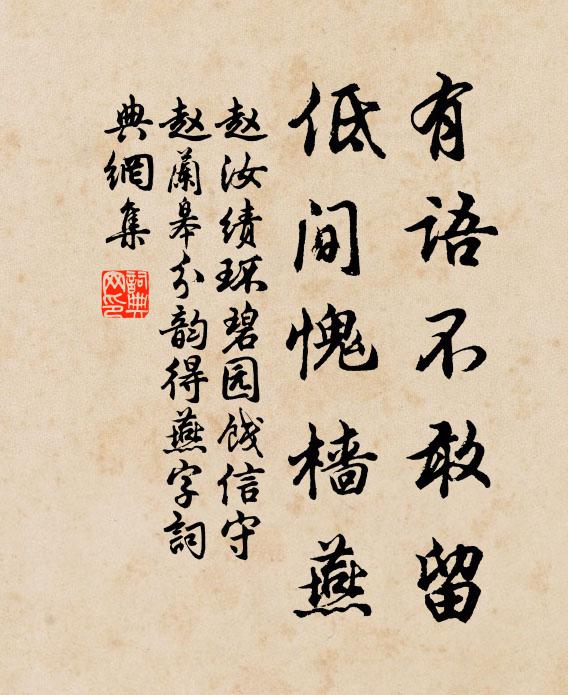 有语不敢留
低间愧樯燕
赵汝绩环碧园饯信守
赵蘭皋分韵得燕字詞
典網集
詞典网印